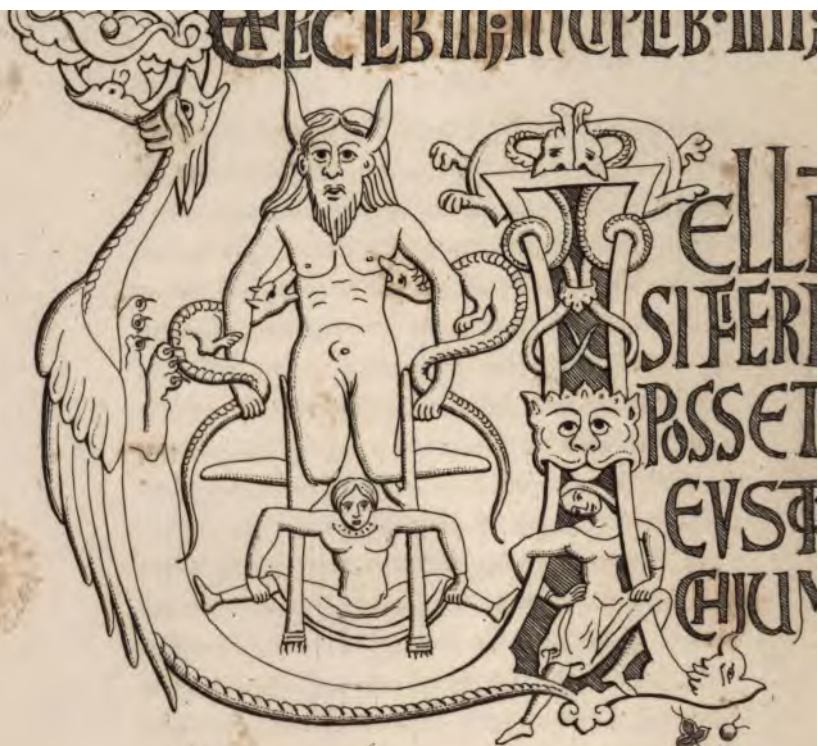 ELIC LIB III; INCIPLIB·IIII;
ELLĒ
SI FIERI
POSSET
EVSTO
CHIUM